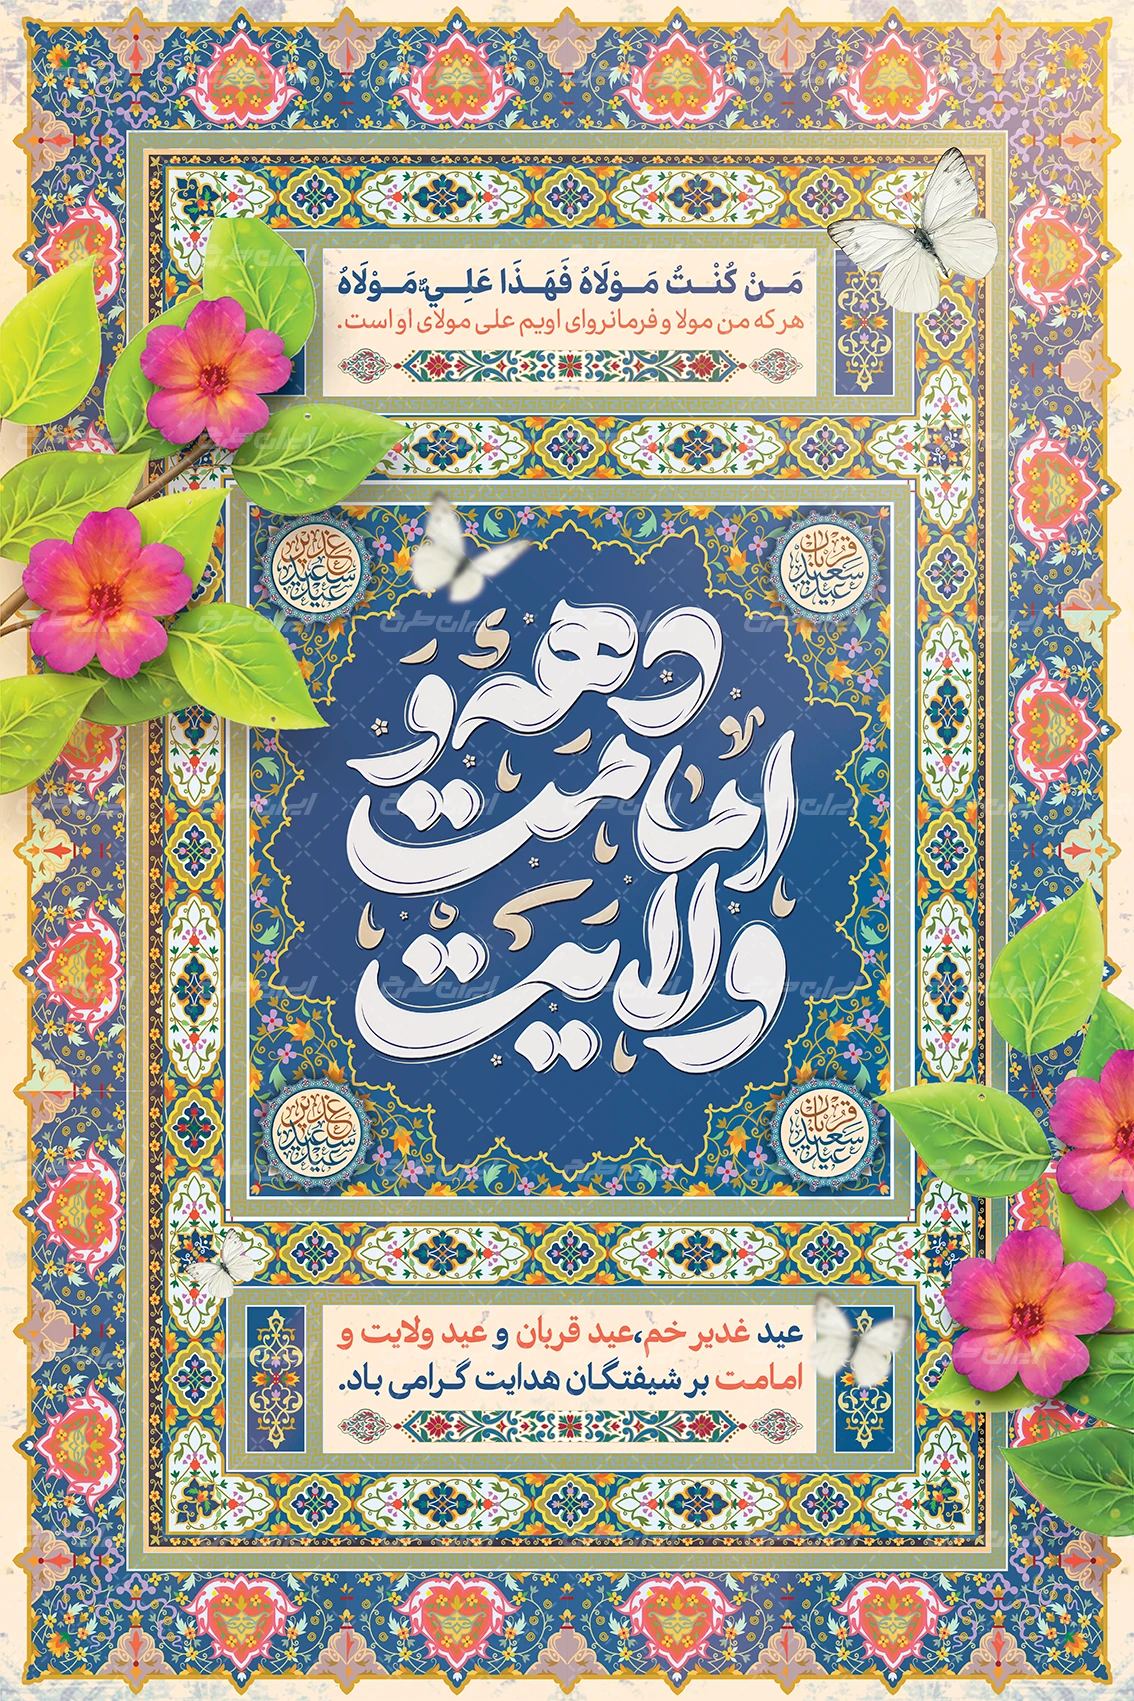 مَـنْ كُنْـتُ مَـوْلَاهُ فَهَـذَا عَلِـيٌّ مَـوْلَاهُ
هر که من مولا و فرمانروای اویم علی مولای او است.
عید غدیر سعید
عید قربان سعید
دههٔ
امامت و
ولایت
عید غدیر سعید
عید قربان سعید
عید غدیر خم،عید قربان و عید ولایت و
امامت بر شیفتگان هدایت گرامی باد.
ایران طرح